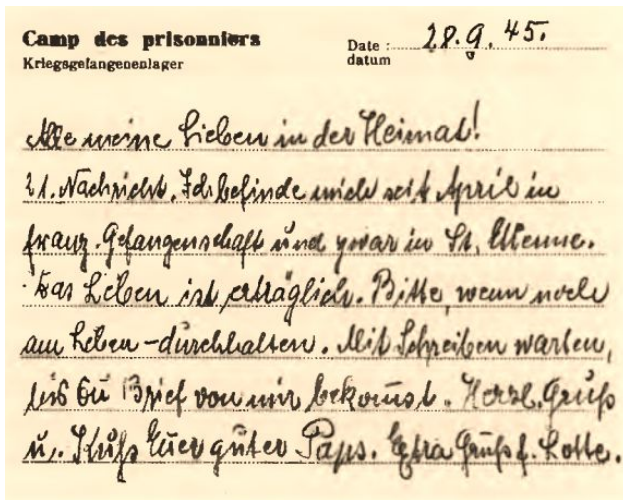 Camp des prisonniers
Kriegsgefangenenlager
Date : 28.9.45.
datum
Alle meine Lieben in der Heimat!
21. Nachricht. Ich befinde mich seit April in
franz. Gefangenschaft und zwar in St. Etienne.
Das Leben ist erträglich. Bitte, wenn noch
am Leben - durchhalten. Mit Schreiben warten,
bis Du Brief von mir bekomst. Herzl. Gruß
u. Kuß Euer guter Paps. Extra Gruß f. Lotte.